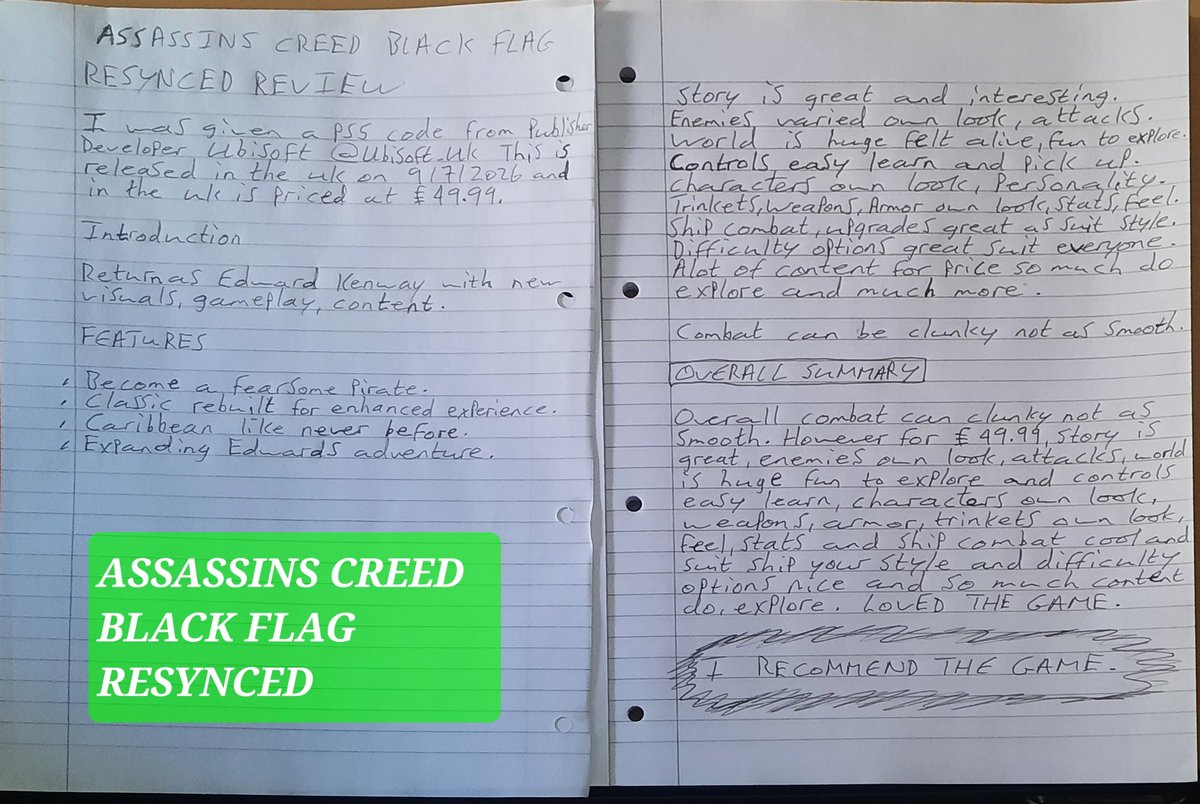 ASSASSINS CREED BLACK FLAG
RESYNCED REVIEW
I was given a PS5 code from Publisher
Developer Ubisoft @Ubisoft_UK This is
released in the uk on 9/7/2026 and
in the uk is priced at £49.99.
Introduction
Return as Edward Kenway with new
visuals, gameplay, content.
FEATURES
Become a fearsome Pirate.
Classic rebuilt for enhanced experience.
Caribbean like never before.
Expanding Edwards adventure.
ASSASSINS CREED
BLACK FLAG
RESYNCED
Story is great and interesting.
Enemies varied own look, attacks.
World is huge felt alive, fun to explore.
Controls easy learn and pick up.
Characters own look, Personality.
Trinkets, Weapons, Armor own look, stats, feel.
Ship combat, upgrades great as suit style.
Difficulty options great suit everyone.
Alot of content for price so much do
explore and much more.
Combat can be clunky not as smooth.
OVERALL SUMMARY
Overall combat can clunky not as
smooth. However for £49.99, story is
great, enemies own look, attacks, world
is huge fun to explore and controls
easy learn, characters own look,
weapons, armor, trinkets own look,
feel, stats and ship combat cool and
suit ship your style and difficulty
options nice and so much content
do, explore. LOVED THE GAME.
I RECOMMEND THE GAME.